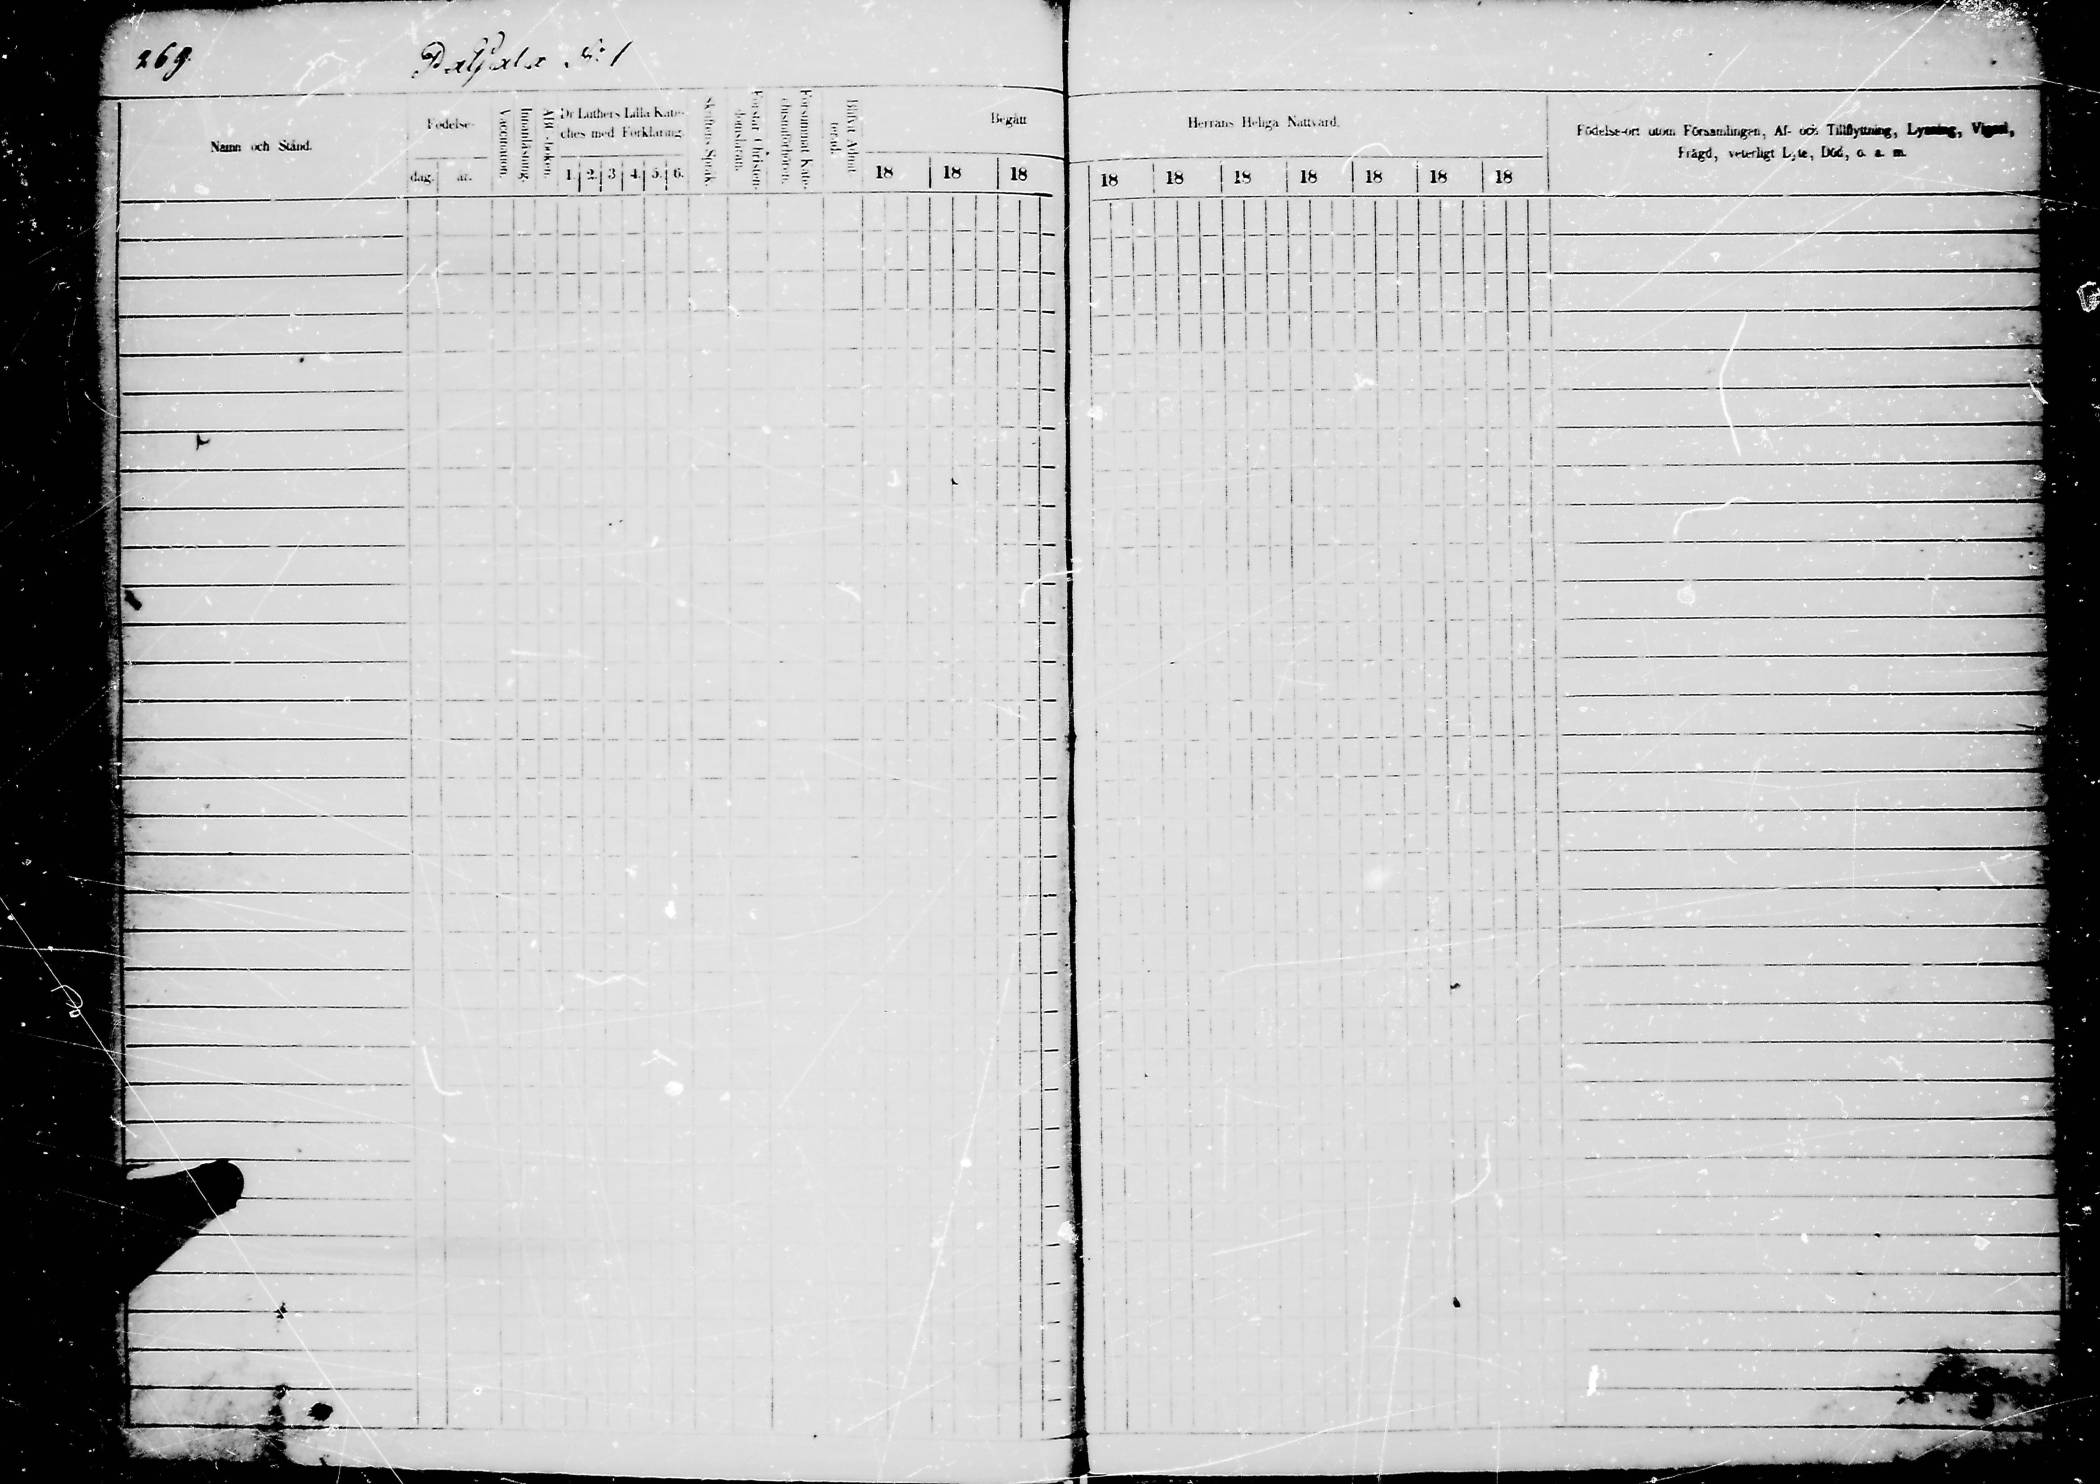 269.
N:o 1
Namn och Stånd.
Födelse-
dag. år.
Vaccination.
Innanläsning.
ABC-boken.
Dr Luthers Lilla Kate-
ches med Förklaring.
1. 2. 3 4. 5. 6.
Skriftens Språk.
Förstår Christen-
domsläran.
Försummat Kate-
chismiförhören.
Blifvit Admit-
terad.
Begått
18 18 18
Herrans Heliga Nattvard.
18 18 18 18 18 18 18
Födelse-ort utom Församlingen, Af- och Tillflyttning, Lysning, Vigsel,
Frägd, veterligt Lyte, Död, o. s. m.